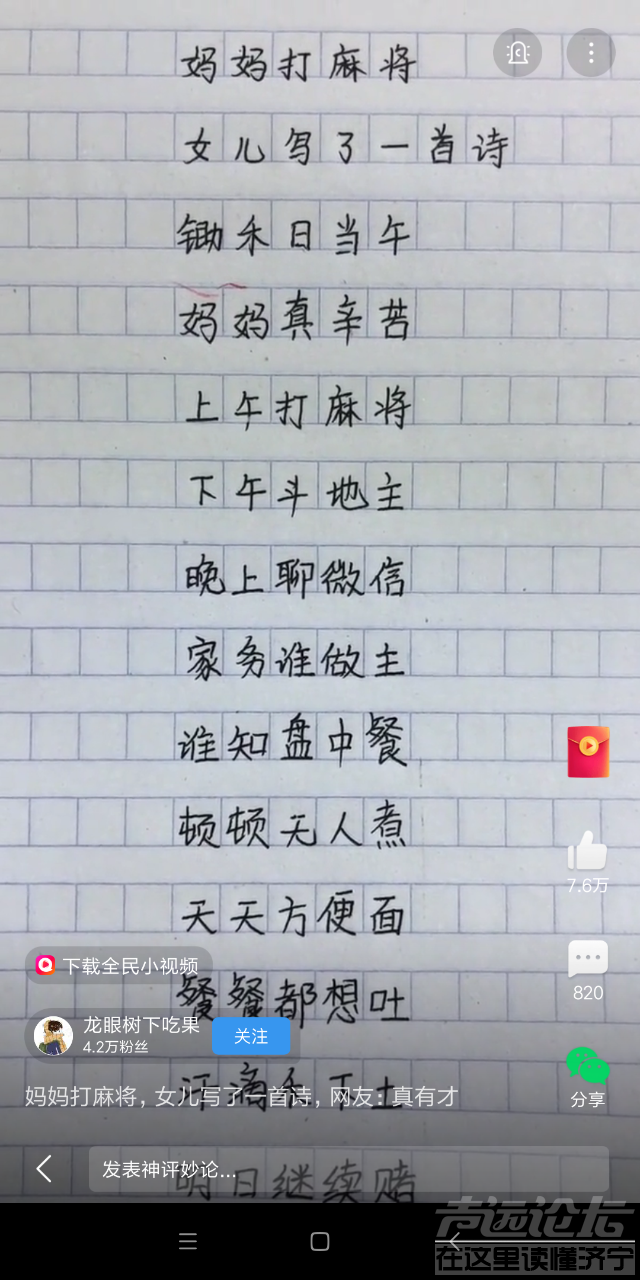 妈妈打麻将
女儿写了一首诗
锄禾日当午
妈妈真辛苦
上午打麻将
下午斗地主
晚上聊微信
家务谁做主
谁知盘中餐
顿顿无人煮
天天方便面
餐餐都想吐
汗滴禾下土
明日继续赌
7.6万
820
分享
下载全民小视频
龙眼树下吃果
4.2万粉丝
关注
妈妈打麻将，女儿写了一首诗，网友：真有才
发表神评妙论...
声远论坛
在这里读懂济宁